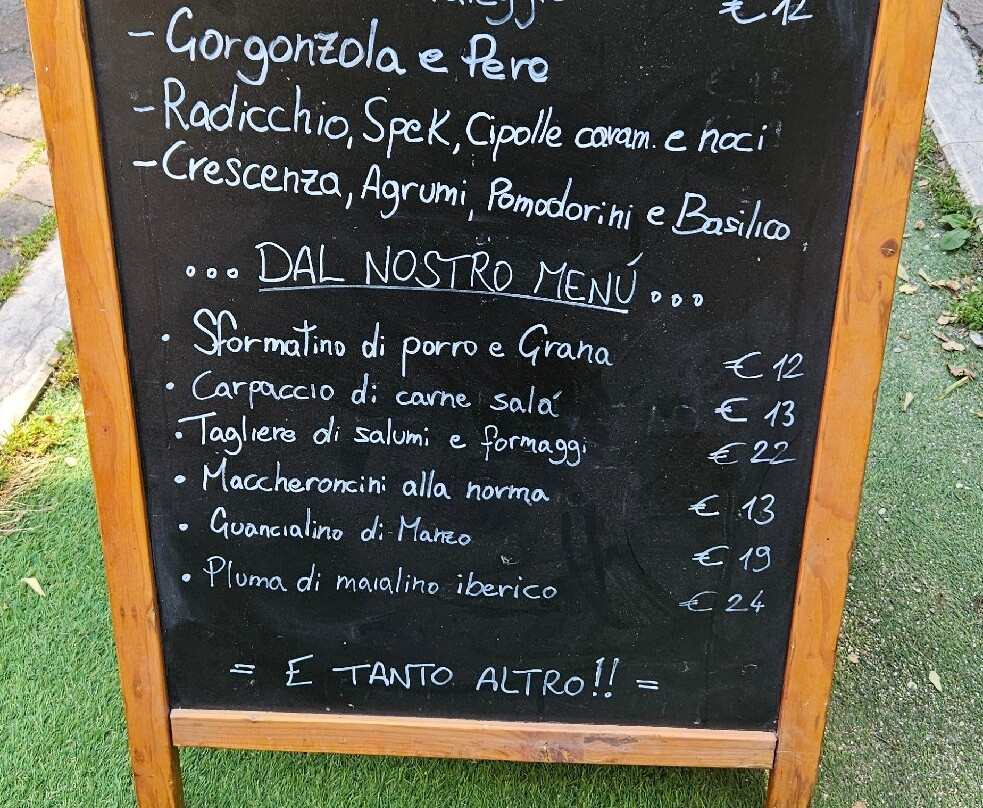 € 12
- Gorgonzola e Pere
- Radicchio, Spek, Cipolle caram. e noci
- Crescenza, Agrumi, Pomodorini e Basilico
... DAL NOSTRO MENÚ ...
• Sformatino di porro e Grana € 12
• Carpaccio di carne salá € 13
• Tagliere di salumi e formaggi € 22
• Maccheroncini alla norma € 13
• Guancialino di Manzo € 19
• Pluma di maialino iberico € 24
= E TANTO ALTRO!! =